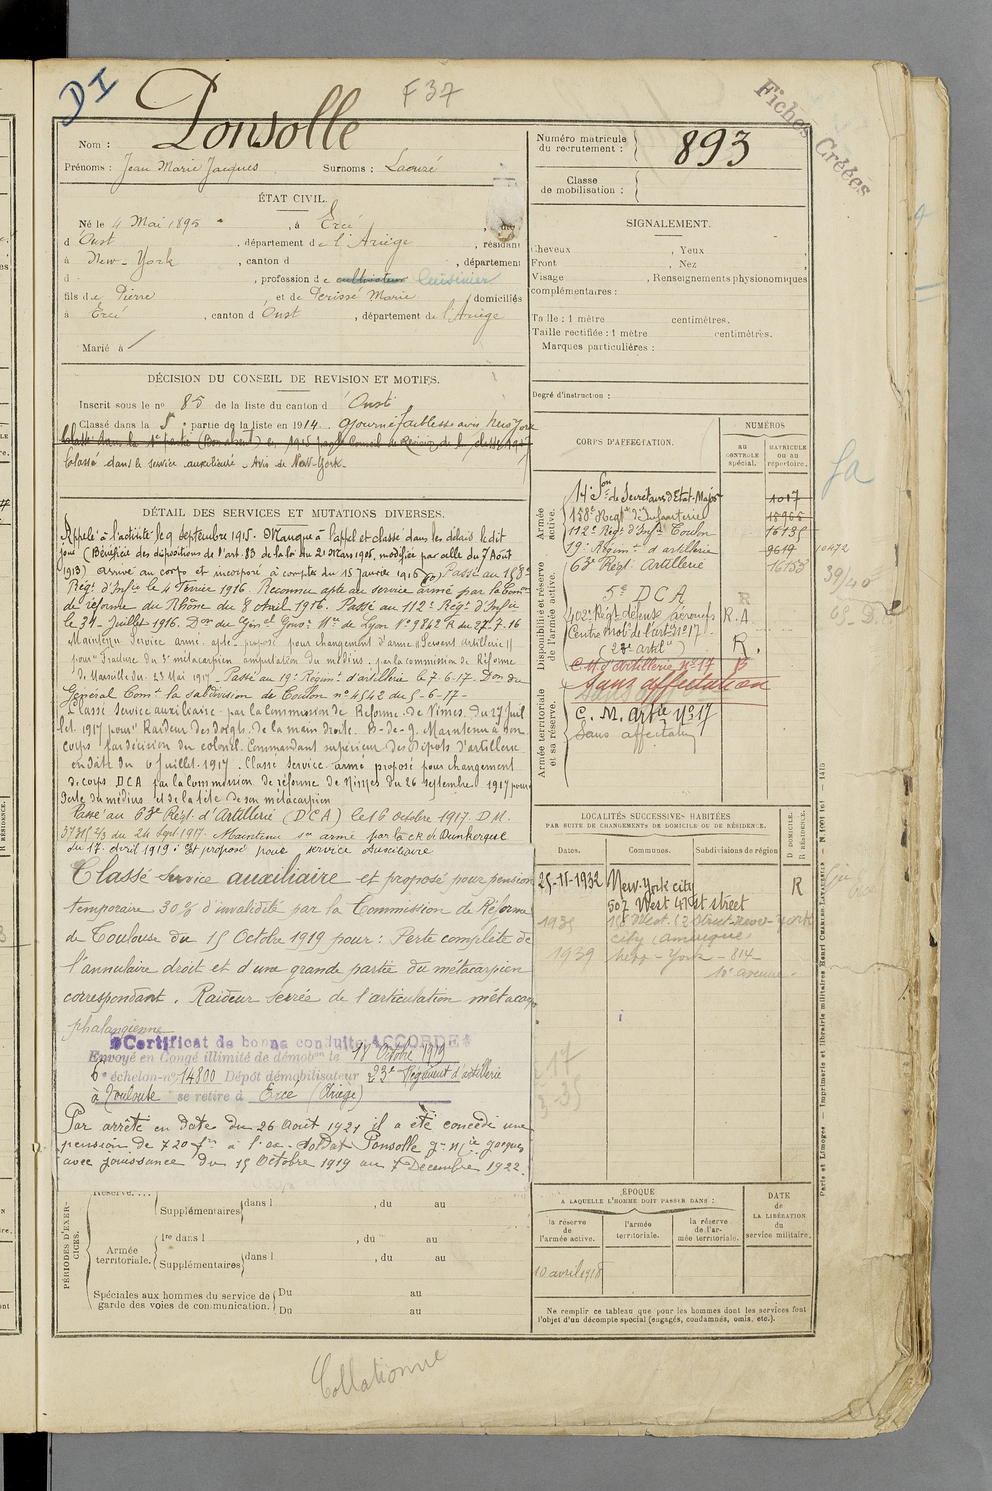 DI
F 37
Fiches Créées
Nom : Ponsolle
Prénoms : Jean Marie Jacques Surnoms : Laouzé
Numéro matricule du recrutement : 893
Classe de mobilisation :
ÉTAT CIVIL.
Né le 4 Mai 1895, à Ercé, canton
d'Oust, département de l'Ariège, résidant
à New-York, canton d , département
d , profession de cultivateur Cuisinier
fils de Pierre et de Perisse Marie domiciliés
à Ercé, canton d'Oust, département de l'Ariège
Marié à
SIGNALEMENT.
Cheveux , Yeux
Front , Nez
Visage , Renseignements physionomiques
complémentaires :
Taille : 1 mètre centimètres.
Taille rectifiée : 1 mètre centimètres.
Marques particulières :
Degré d'instruction :
DÉCISION DU CONSEIL DE REVISION ET MOTIFS.
Inscrit sous le no 85 de la liste du canton d'Oust
Classé dans la 5e partie de la liste en 1914. Ajourné faiblesse avis New York
Classé dans la 1e partie (Bon absent) en 1915 par le Conseil de Révision de la classe 1917
Classé dans le service auxiliaire. Avis de New-York.
DÉTAIL DES SERVICES ET MUTATIONS DIVERSES.
Appelé à l'activité le 9 septembre 1915. Manque à l'appel et classé dans les délais le dit
jour (Bénéficie des dispositions de l'art. 83 de la loi du 21 Mars 1905, modifiée par celle du 7 Août
1913) arrivé au corps et incorporé à compter du 15 Janvier 1916 Passé au 158e
Régt d'Infie le 4 Février 1916. Reconnu apte au service armé par la Comon
de réforme du Rhône du 8 Avril 1916. Passé au 112e Régt d'Infie
le 31 Juillet 1916. Don du Génal Gouvr Mre de Lyon No 9862 R du 27.7.16
Maintenu Service armé. apte. proposé pour changement d'arme
pour Fracture du 3e métacarpien amputation du médius. par la commission de Réforme
de Marseille du 23 Mai 1917. Passé au 19e Régimt d'artillerie le 7-6-17. Don du
Général Comt la subdivision de Toulon no 4542 du 5-6-17-
Classé Service auxiliaire par la Commission de Réforme de Nimes du 27 Juil
let 1917 pour Raideur des doigts de la main droite. Maintenu à son
corps par décision du colonel Commandant supérieur des Dépots d'artillerie
en date du 6 juillet 1917. Classé Service armé proposé pour changement
de corps DCA par la Commission de réforme de Nimes du 26 septembre 1917 pour
perte du médius et de la tête de son métacarpien
Passé au 63e Régt d'Artillerie (DCA) le 16 octobre 1917. D.M.
du 24 Sept 1917. Maintenu sce armé par la CR de Dunkerque
du 17 avril 1919 : Est proposé pour service auxiliaire
Classé Service auxiliaire et proposé pour pension
temporaire 30% d'invalidité par la Commission de Réforme
de Toulouse du 15 Octobre 1919 pour : Perte complète de
l'annulaire droit et d'une grande partie du métacarpien
correspondant. Raideur serrée de l'articulation métacarpo
phalangienne
Certificat de bonne conduite ACCORDÉ
Envoyé en Congé illimité de démobon le 18 Octobre 1919
6e échelon no 14800 Dépôt démobilisateur 23e Régiment d'artillerie
à Toulouse se retire à Ercé (Ariège)
Par arrêté en date du 26 Août 1921 il a été concédé une
pension de 720 fr à l'ex-soldat Ponsolle Jn Mie Jacques
avec jouissance du 15 Octobre 1919 au 7 Décembre 1922.
CORPS D'AFFECTATION.
NUMÉROS
AU CONTROLE spécial.
MATRICULE ou au répertoire.
Armée active.
14e Son de Secrétaires d'Etat-Major 1017
158e Régt d'Infanterie 15965
112e Régt d'Infie Toulon 16735
19e Régimt d'artillerie 9619 10472
63e Régt Artillerie 16153
Disponibilité et réserve de l'armée active.
5e DCA R
402e Régt défense aéronefs R.A.
Centre mob. de l'artie no 17 R.
(28e Artie)
C.M. d'artillerie no 17 R
Sans affectation
Armée territoriale et sa réserve.
C. M. Artie No 17
Sans affectation
39/40
LOCALITÉS SUCCESSIVES HABITÉES
PAR SUITE DE CHANGEMENTS DE DOMICILE OU DE RÉSIDENCE.
Dates. Communes. Subdivisions de région
D DOMICILE. R RÉSIDENCE.
25-11-1932 New-York city R
507 West 41st street
1935
city (Amérique)
1939 New-York - 814
10e avenue
ÉPOQUE
A LAQUELLE L'HOMME DOIT PASSER DANS :
la réserve de l'armée active.
l'armée territoriale.
la réserve de l'armée territoriale.
DATE de LA LIBÉRATION du service militaire.
10 avril 1918
Ne remplir ce tableau que pour les hommes dont les services font
l'objet d'un décompte spécial (engagés, condamnés, omis, etc.).
PÉRIODES D'EXERCICES.
Réserve....
Supplémentaires dans l , du au
Armée territoriale.
1re dans l , du au
Supplémentaires dans l , du au
Spéciales aux hommes du service de garde des voies de communication.
Du au
Du au
Paris et Limoges. — Imprimerie et librairie militaires Henri CHARLES-LAVAUZELLE
Collationné